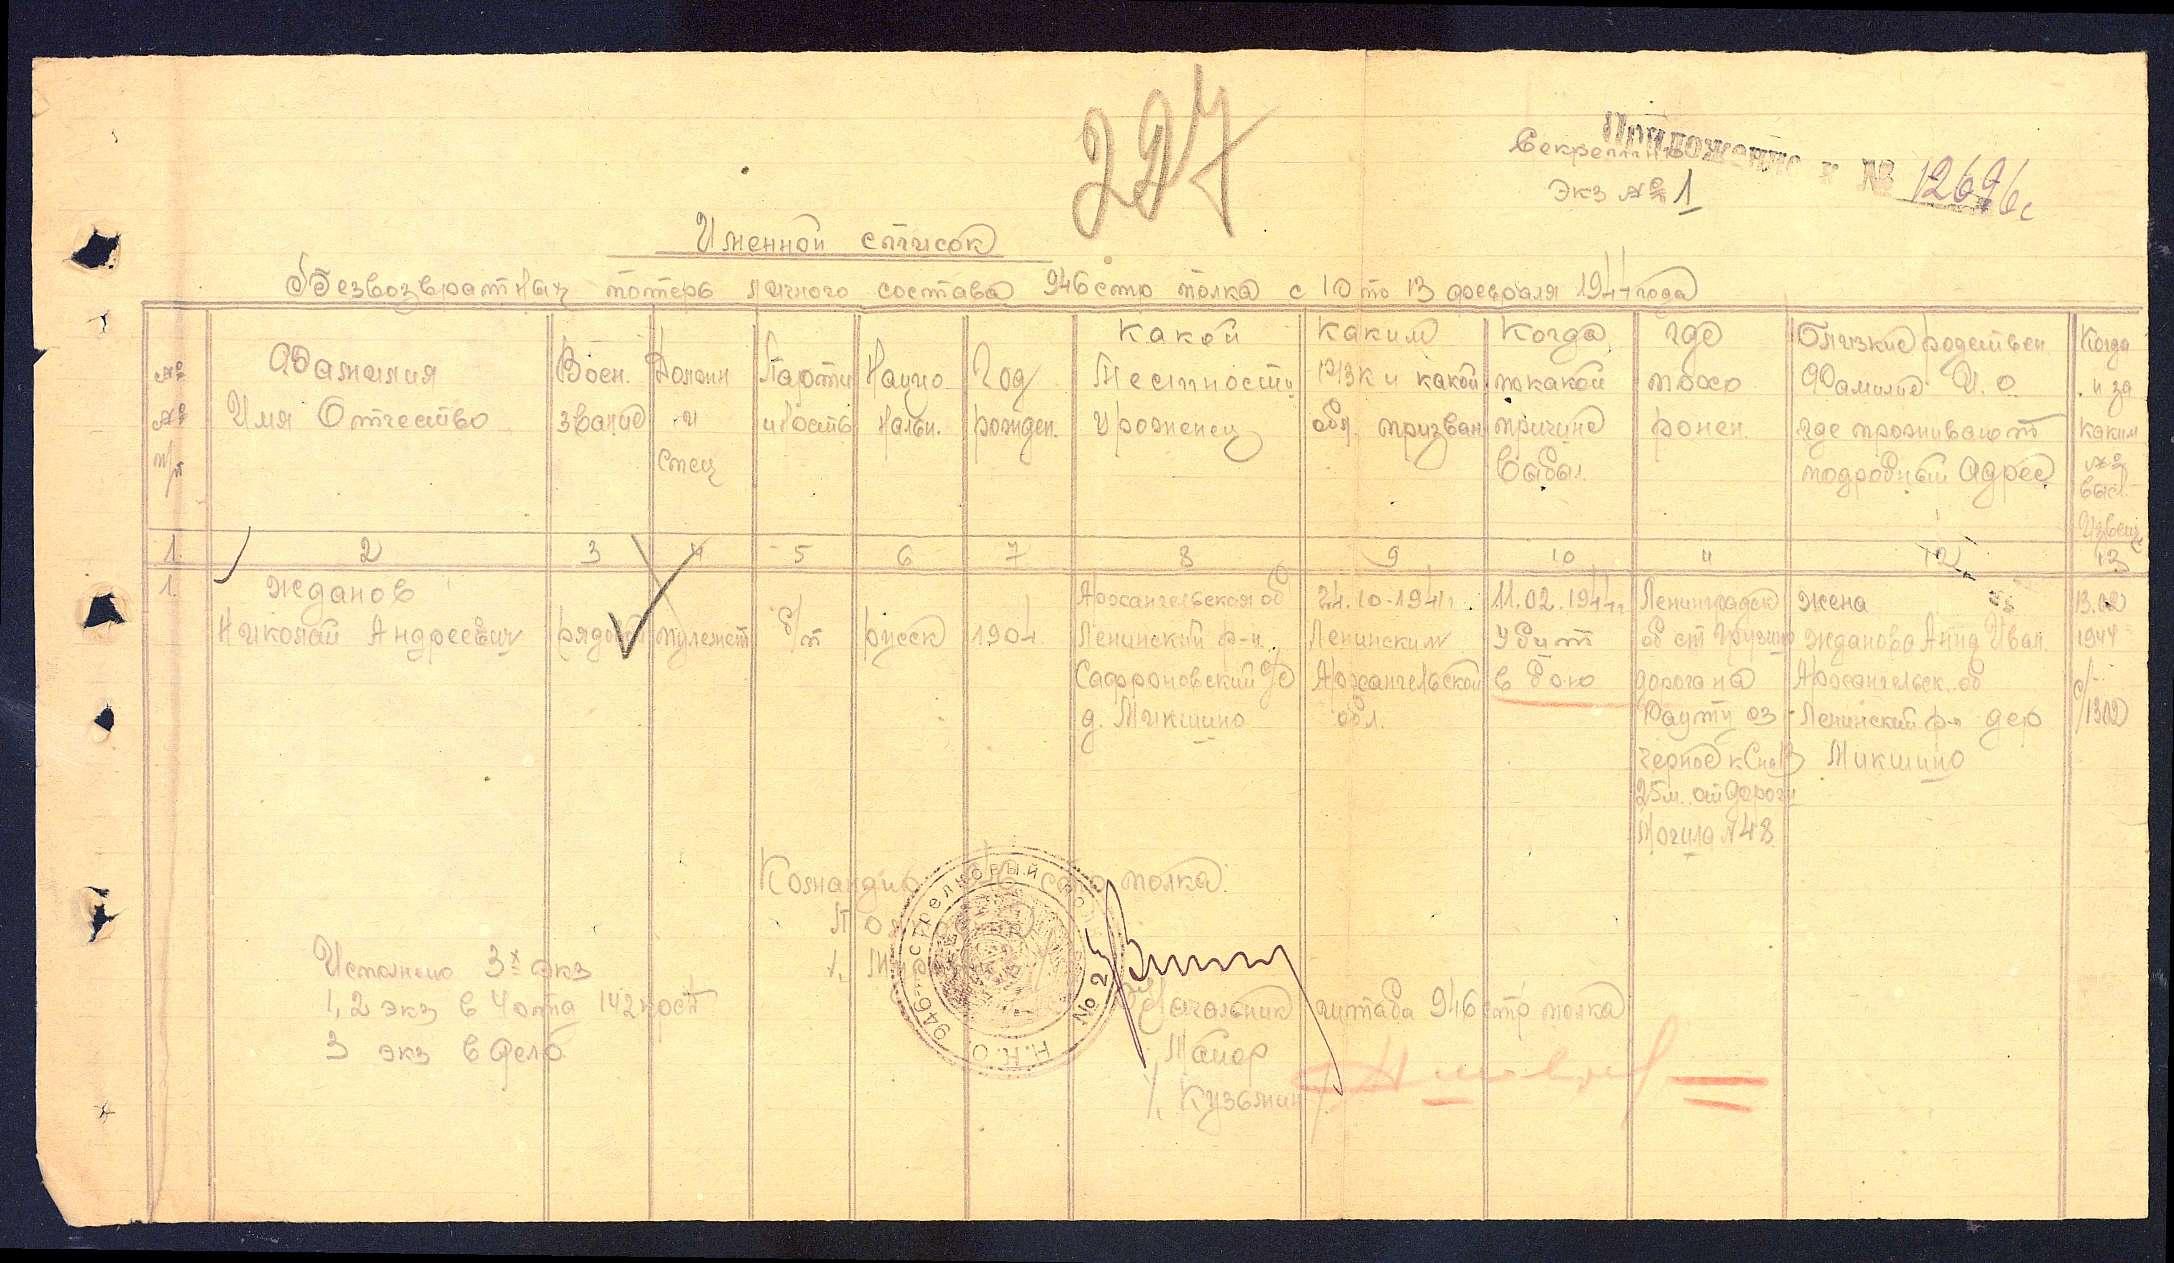 227
Приложение к № 12696с
Секретно
Экз № 1
Именной список
безвозвратных потерь личного состава 946 стр полка с 10 по 13 февраля 1944 года
№№ п/п
Фамилия Имя Отчество
Воен. звание
Должн и спец
Парти йность
Нацио нальн.
Год рожден.
Какой местности уроженец
Каким РВК и какой обл. призван
Когда по какой причине выбыл.
где похо ронен.
Близкие родствен Фамилие И.О. где проживают подробный адрес
Когда и за каким № высл. Извещ.
1. 2 3 4 5 6 7 8 9 10 11 12 13
1.
Жданов
Николай Андреевич
рядовой
пулемет
б/п
русск
1904
Архангельская об
Ленинский р-н.
Сафроновский с/с
д. Микшино
24.10.1941г.
Ленинским
Архангельской
обл.
11.02.1944г
Убит
в бою
Ленинградск
об ст
дорога на
оз
Черное к
25м. от дороги
Могила №48
жена
Жданова Анна Иван.
Архангельск. об
Ленинский р-н дер
Микшино
13.02
1944
с/1302
Командир 946 стр полка:
946-й стрелковый полк Н.К.О. № 2
Исполнено 3х экз
1, 2 экз в 4 отд
3 экз в дело
Начальник штаба 946 стр полка
Майор
/. Кузьмин /.